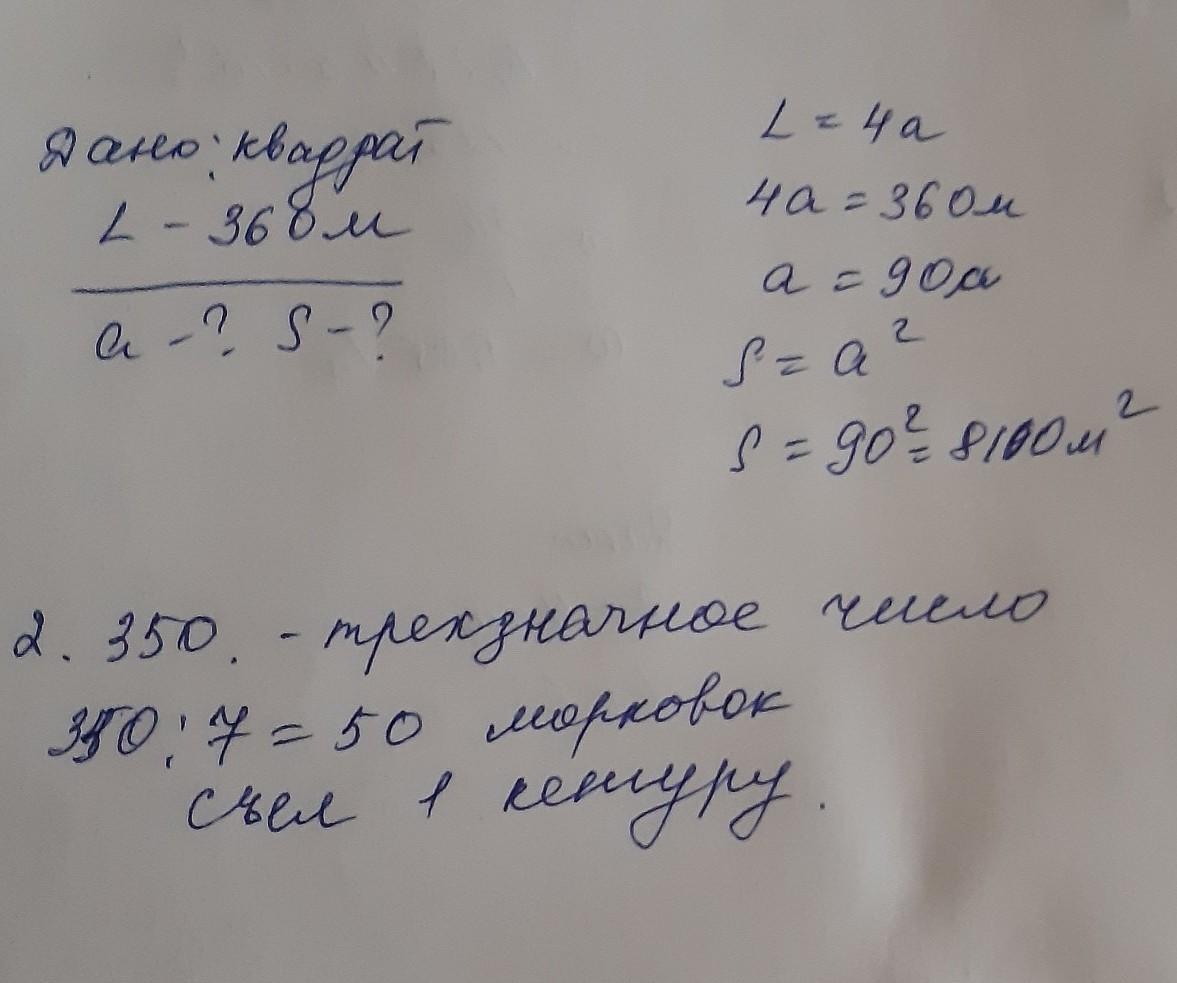 Дано: квадрат
L - 360м
a - ? S - ?
L = 4a
4a = 360м
a = 90м
S = a²
S = 90² = 8100м²
2. 350. - трехзначное число
350 : 7 = 50 морковок
съел 1 кенгуру.